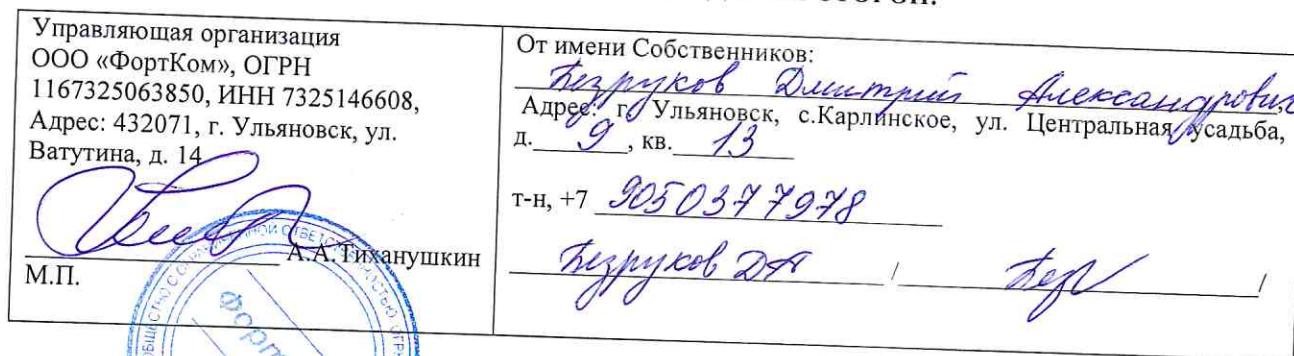 СТОРОН:
Управляющая организация
ООО «ФортКом», ОГРН
1167325063850, ИНН 7325146608,
Адрес: 432071, г. Ульяновск, ул.
Ватутина, д. 14
А.А.Тиханушкин
М.П.
От имени Собственников:
Безруков Дмитрий Александрович,
Адрес: г. Ульяновск, с.Карлинское, ул. Центральная усадьба,
д. 9, кв. 13
т-н, +7 9050377978
Безруков ДА / Без /
ОБЩЕСТВО С ОГРАНИЧЕННОЙ ОТВЕТСТВЕННОСТЬЮ ОГРН
Форт